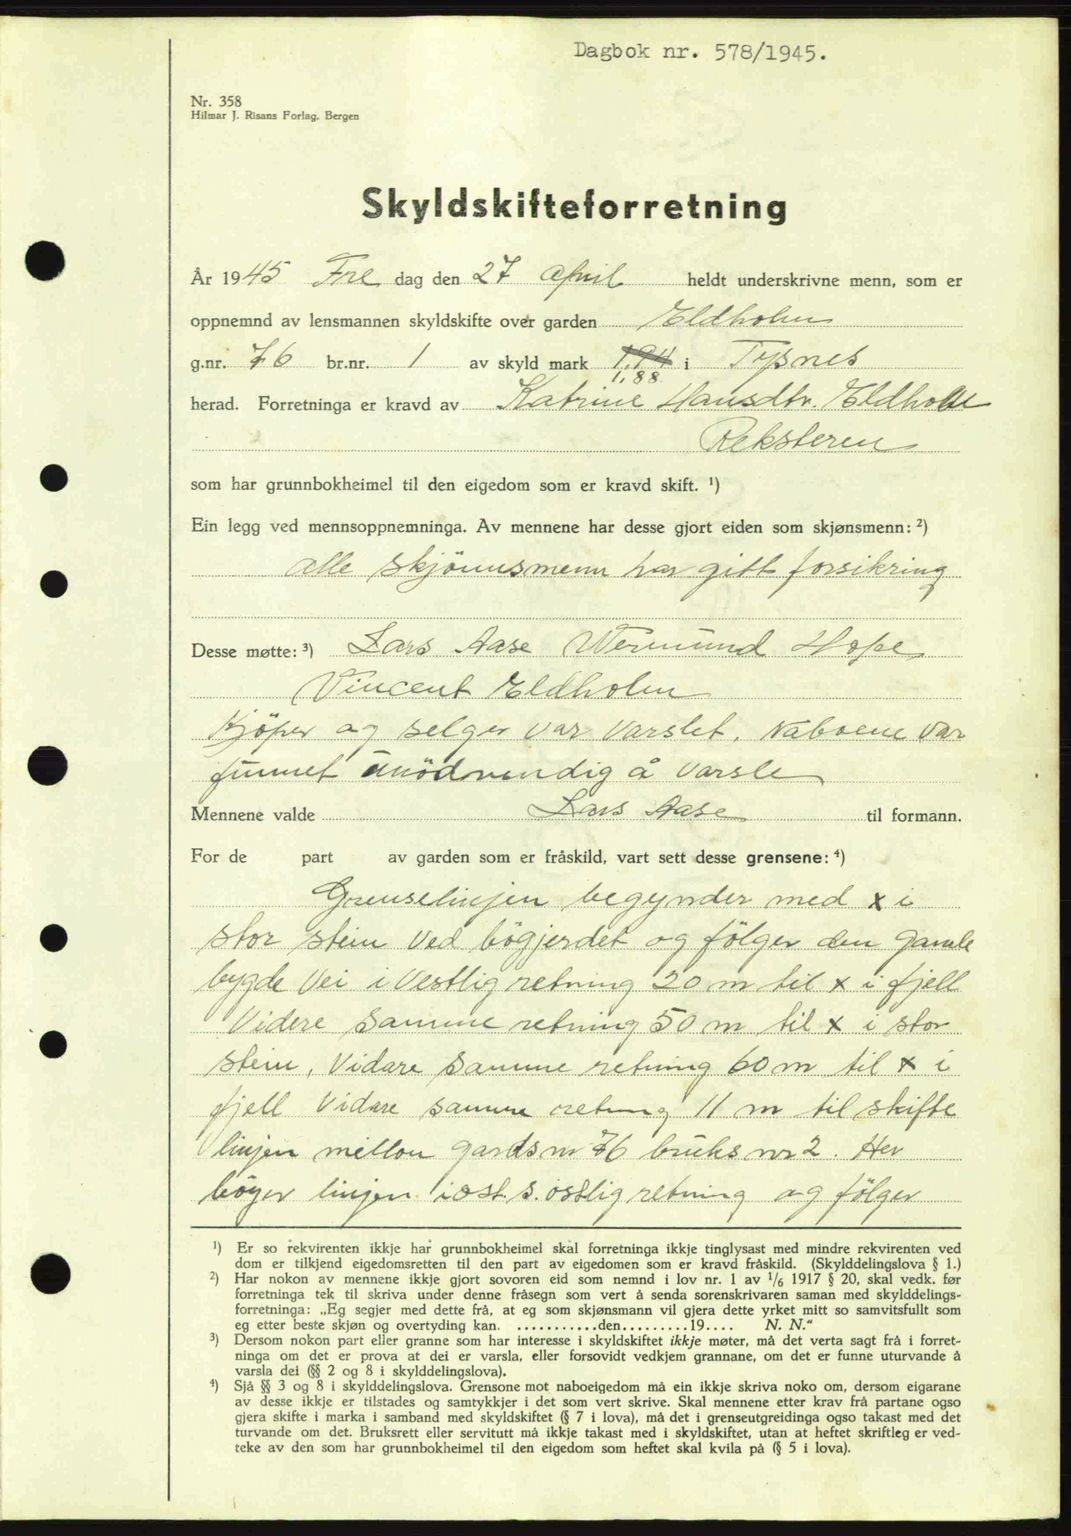 Dagbok nr. 578/1945.
Nr. 358
Hilmar J. Risans Forlag, Bergen
Skyldskifteforretning
År 1945 Fre dag den 27 April heldt underskrivne menn, som er
oppnemnd av lensmannen skyldskifte over garden Eldholm
g.nr. 76 br.nr. 1 av skyld mark 1,94 i Tysnes
1,88
herad. Forretninga er kravd av Katrine Hansdtr. Eldholm
Reksteren
som har grunnbokheimel til den eigedom som er kravd skift. ¹)
Ein legg ved mennsoppnemninga. Av mennene har desse gjort eiden som skjønsmenn: ²)
alle skjönnsmenn har gitt forsikring
Desse møtte: ³) Lars Aase Wermund Hope
Vincent Eldholm
Kjöper og selger var varslet. Naboene var
funnet unödvendig å varsle
Mennene valde Lars Aase til formann.
For de part av garden som er fråskild, vart sett desse grensene: ⁴)
Grenselinjen begynder med x i
stor stein ved bögjerdet og fölger den gamle
bygde vei i vestlig retning 20 m til x i fjell
Videre samme retning 50 m til x i stor
stein, Vidare samme retning 60 m til x i
fjell Vidare samme retning 11 m til skifte
linjen mellon gards nr 76 bruks nr 2. Her
böyer linjen i ost. s. östlig retning og fölger
¹) Er so rekvirenten ikkje har grunnbokheimel skal forretninga ikkje tinglysast med mindre rekvirenten ved
dom er tilkjend eigedomsretten til den part av eigedomen som er kravd fråskild. (Skylddelingslova § 1.)
²) Har nokon av mennene ikkje gjort sovoren eid som nemnd i lov nr. 1 av ¹/₆ 1917 § 20, skal vedk. før
forretninga tek til skriva under denne fråsegn som vert å senda sorenskrivaren saman med skylddelings-
forretninga: „Eg segjer med dette frå, at eg som skjønsmann vil gjera dette yrket mitt so samvitsfullt som
eg etter beste skjøn og overtyding kan. ...........den.........19.... N. N.“
³) Dersom nokon part eller granne som har interesse i skyldskiftet ikkje møter, må det verta sagt frå i forret-
ninga om det er prova at dei er varsla, eller forsovidt vedkjem grannane, om det er funne uturvande å
varsla dei (§§ 2 og 8 i skylddelingslova).
⁴) Sjå §§ 3 og 8 i skylddelingslova. Grensone mot naboeigedom må ein ikkje skriva noko om, dersom eigarane
av desse ikkje er tilstades og samtykkjer i det som vert skrive. Skal mennene etter krav frå partane ogso
gjera skifte i marka i samband med skyldskiftet (§ 7 i lova), må det i grenseutgreidinga ogso takast med det
turvande om det. Bruksrett eller servitutt må ikkje takast med i skyldskiftet, utan at heftet skriftleg er ved-
teke av den som har grunnbokheimel til den eigedom som heftet skal kvila på (§ 5 i lova).